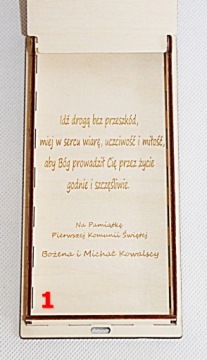 Idź drogą bez przeszkód,
miej w sercu wiarę, uczciwość i miłość,
aby Bóg prowadził Cię przez życie
godnie i szczęśliwie.
Na Pamiątkę
Pierwszej Komunii Świętej
Bożena i Michał Kowalscy
1